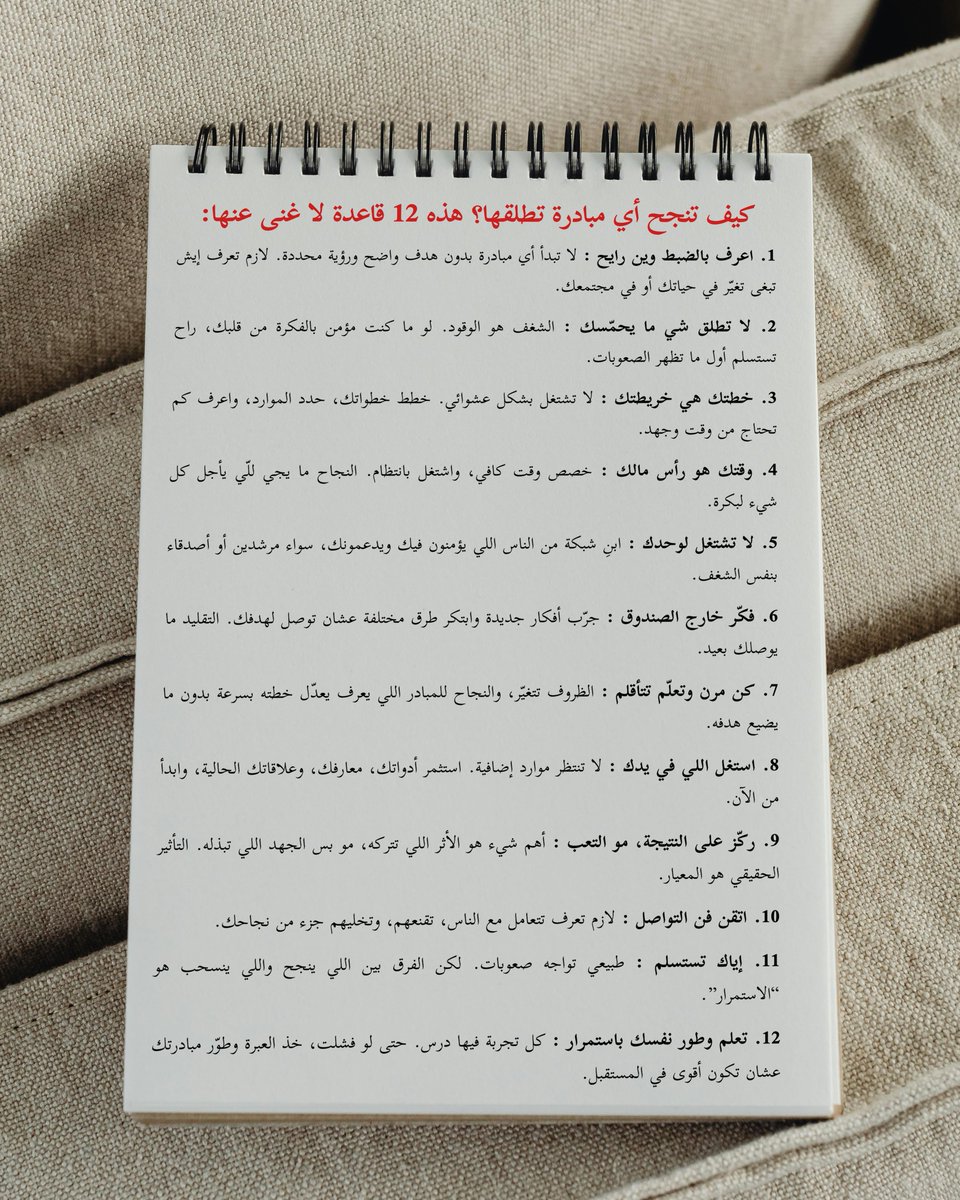 كيف تنجح أي مبادرة تطلقها؟ هذه 12 قاعدة لا غنى عنها:
1. اعرف بالضبط وين رايح : لا تبدأ أي مبادرة بدون هدف واضح ورؤية محددة. لازم تعرف إيش
تبغى تغيّر في حياتك أو في مجتمعك.
2. لا تطلق شي ما يحمّسك : الشغف هو الوقود. لو ما كنت مؤمن بالفكرة من قلبك، راح
تستسلم أول ما تظهر الصعوبات.
3. خطتك هي خريطتك : لا تشتغل بشكل عشوائي. خطط خطواتك، حدد الموارد، واعرف كم
تحتاج من وقت وجهد.
4. وقتك هو رأس مالك : خصص وقت كافي، واشتغل بانتظام. النجاح ما يجي للّي يأجل كل
شيء لبكرة.
5. لا تشتغل لوحدك : ابنِ شبكة من الناس اللي يؤمنون فيك ويدعمونك، سواء مرشدين أو أصدقاء
بنفس الشغف.
6. فكّر خارج الصندوق : جرّب أفكار جديدة وابتكر طرق مختلفة عشان توصل لهدفك. التقليد ما
يوصلك بعيد.
7. كن مرن وتعلّم تتأقلم : الظروف تتغيّر، والنجاح للمبادر اللي يعرف يعدّل خطته بسرعة بدون ما
يضيع هدفه.
8. استغل اللي في يدك : لا تنتظر موارد إضافية. استثمر أدواتك، معارفك، وعلاقاتك الحالية، وابدأ
من الآن.
9. ركّز على النتيجة، مو التعب : أهم شيء هو الأثر اللي تتركه، مو بس الجهد اللي تبذله. التأثير
الحقيقي هو المعيار.
10. اتقن فن التواصل : لازم تعرف تتعامل مع الناس، تقنعهم، وتخليهم جزء من نجاحك.
11. إياك تستسلم : طبيعي تواجه صعوبات. لكن الفرق بين اللي ينجح واللي ينسحب هو
“الاستمرار”.
12. تعلم وطور نفسك باستمرار : كل تجربة فيها درس. حتى لو فشلت، خذ العبرة وطوّر مبادرتك
عشان تكون أقوى في المستقبل.